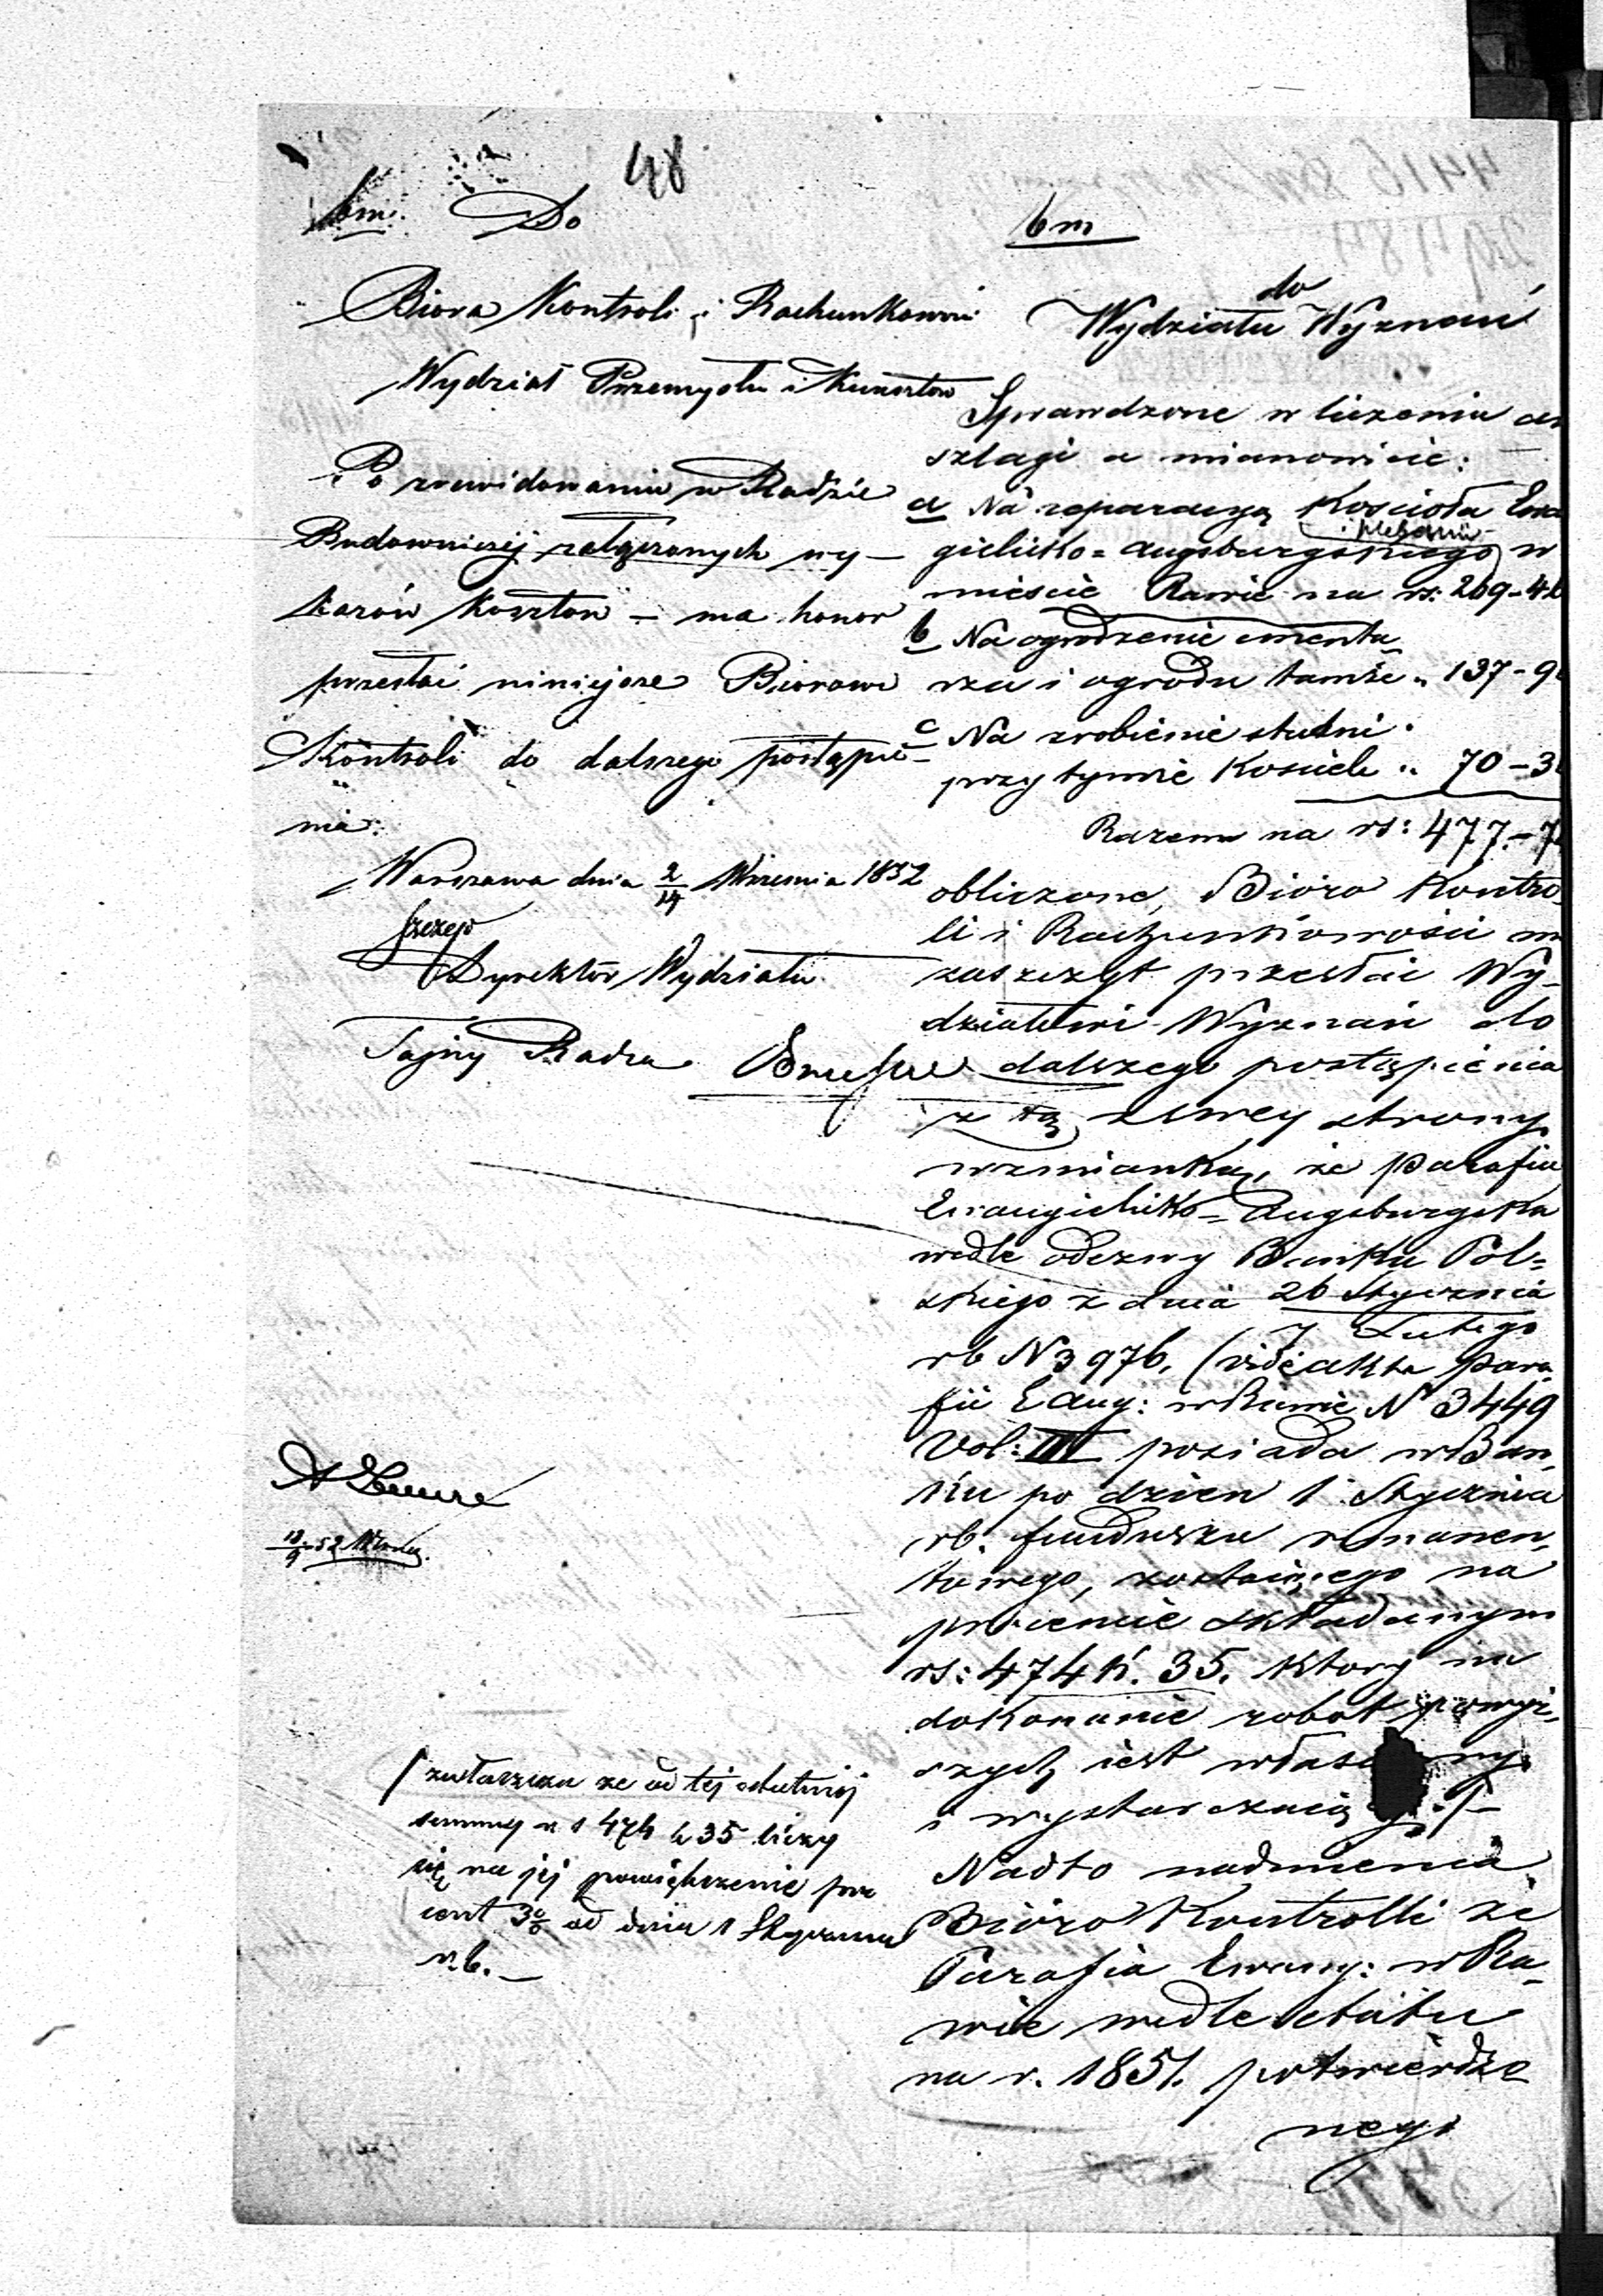 48
bm. Do
Biora Kontroli i Rachunkowości
Wydział Przemysłu i Kunsztów
Po zrewidowaniu w Radzie
Budowniczej załączonych wy-
kazów kosztow – ma honor
przesłać niniejsze Biorowi
Kontroli do dalszego postąpie-
nia.
Warszawa dnia 2/14 Września 1852
Dyrektor Wydziału
Tajny Radca
zwłaszcza że od tej ostatniej
summy rs 474 k 35 liczy
się na jej powiększenie pro
cent 3% od dnia 1 Stycznia
r.b. –
bm
do
Wydziału Wyznań
Sprawdzone w liczeniu an
szlagi a mianowicie:
a Na reparacyą Kościoła Ewa
i plebanii
gielicko=augsburgskiego w
mieście Rawie na rs: 269-4
b Na ogrodzenie cmenta
rza i ogrodu tamże „ 137-9
c Na zrobienie studni
przy tymże Kościele „ 70-3
Razem na rs: 477.-7
obliczone, Bióro Kontro
li i Rachunkowości m
zaszczyt przesłać Wy-
działowi Wyznań do
dalszego postąpienia
z tą z swey strony
wzmianką, że Parafia
Ewangielicko=Augsburgska
wedle odezwy Banku Pol=
skiego z dnia 26 Stycznia
7 Lutego
rb N 3976, (vide akta para
fii E Aug: w Rawie N 3449
Vol: III posiada w Ban,
ku po dzien 1 Stycznia
rb. funduszu remanen,
towego, zostaiącego na
procencie składanym
rs: 474 k. 35. ktory na
dokonanie robot powyż,
szych iest
i
Nadto nadmienia
Bióro Kontrolli że
Parafia Ewang: w Ra-
wie wedle etatu
na r. 1851. potwierdzo
nego